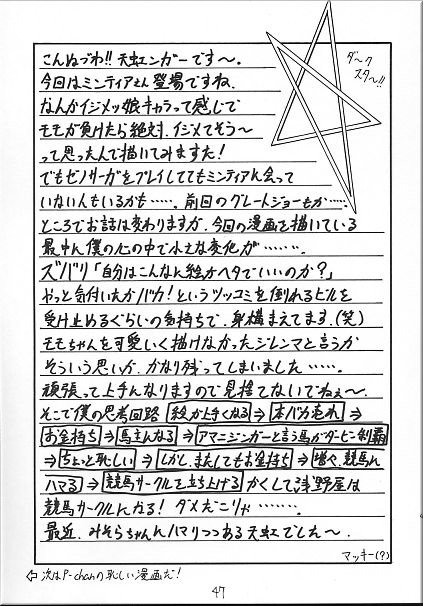 こんぬづわ!!天虹ンガーです〜。
ダ〜クスタ〜!!
今回はミンティアさん登場ですね.
なんかイジメッ娘キャラって感じで
モモが負けたら絶対.イジメてそう〜
って思ったんで描いてみますた!
でもゼノサーガをプレイしててもミンティアに会って
いない人もいるかも……. 前回のグレートジョーもか……
ところでお話は変わりますが、今回の漫画を描いている
最中に僕の心の中で小さな変化が…….
ズバリ「自分はこんなに絵がヘタでいいのか?」
やっと気付いたかバカ!というツッコミを倒れるビルを
受け止めるぐらいの気持ちで、身構えてます.(笑)
モモちゃんを可愛いく描けなかったジレンマと言うか
そういう思いが.かなり残ってしまいました…….
頑張って上手になりますので見捨てないでねぇ〜.
そこで僕の思考回路 絵が上手くなる⇒本バカ売れ⇒
お金持ち⇒馬主になる⇒アマニジンガーと言う馬がダービー制覇
⇒ちょっと恥しい⇒しかし、またしてもお金持ち⇒増々、競馬に
ハマる⇒競馬サークルを立ち上げる かくして浅野屋は
競馬サークルになる! ダメだこりゃ…….
最近、みそらちゃんにハマりつつある天虹でした〜.
マッキー(?)
⇦次はP-chanの恥しい漫画だ!
47